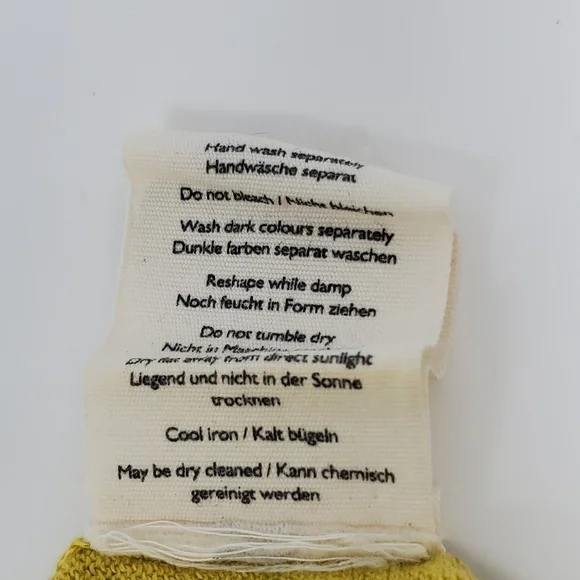 Hand wash separately
Handwäsche separat
Do not bleach / Nicht bleichen
Wash dark colours separately
Dunkle farben separat waschen
Reshape while damp
Noch feucht in Form ziehen
Do not tumble dry
Nicht in
Dry flat away from direct sunlight
Liegend und nicht in der Sonne
trocknen
Cool iron / Kalt bügeln
May be dry cleaned / Kann chemisch
gereinigt werden